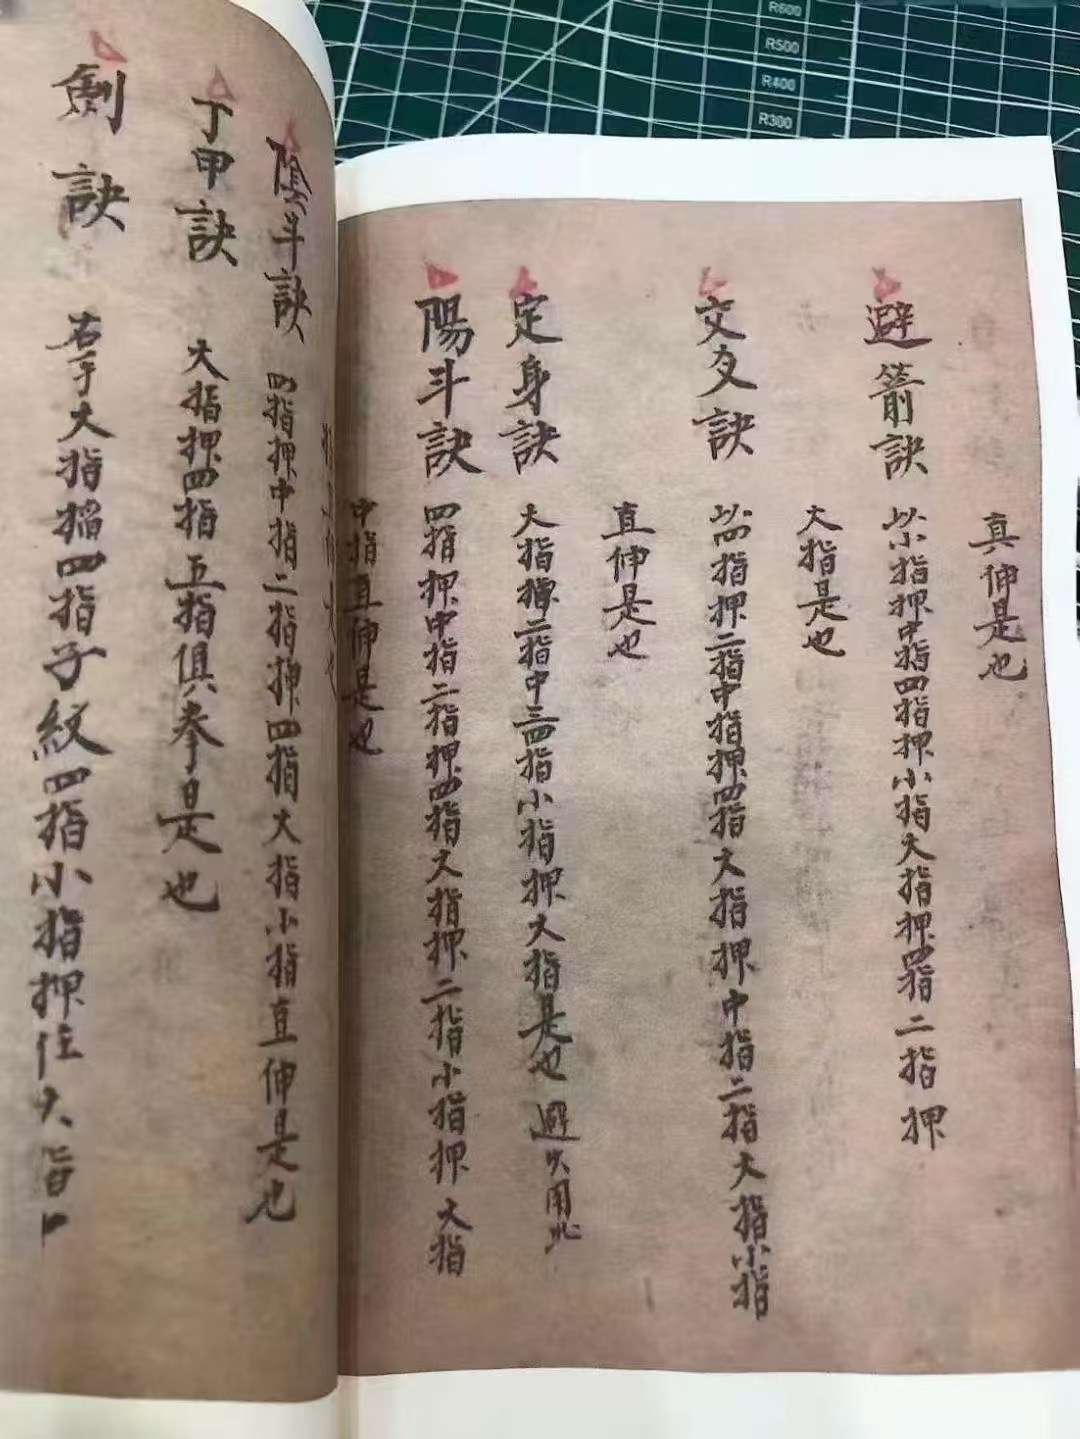 真伸是也
避箭訣 以小指押中指四指押小指大指押四指二指押
大指是也
交叉訣 以四指押二指中指押四指大指押中指二指大指小指
直伸是也
定身訣 大指二指中三四指小指押大指是也 避火用此
陽斗訣 四指押中指二指押四指大指押二指小指押大指
中指直伸是也
陰斗訣 四指押中指二指押四指大指小指直伸是也
丁甲訣 大指押四指五指俱拳是也
劍訣 右手大指掐四指子紋四指小指押住大指
R600
R500
R400
R300